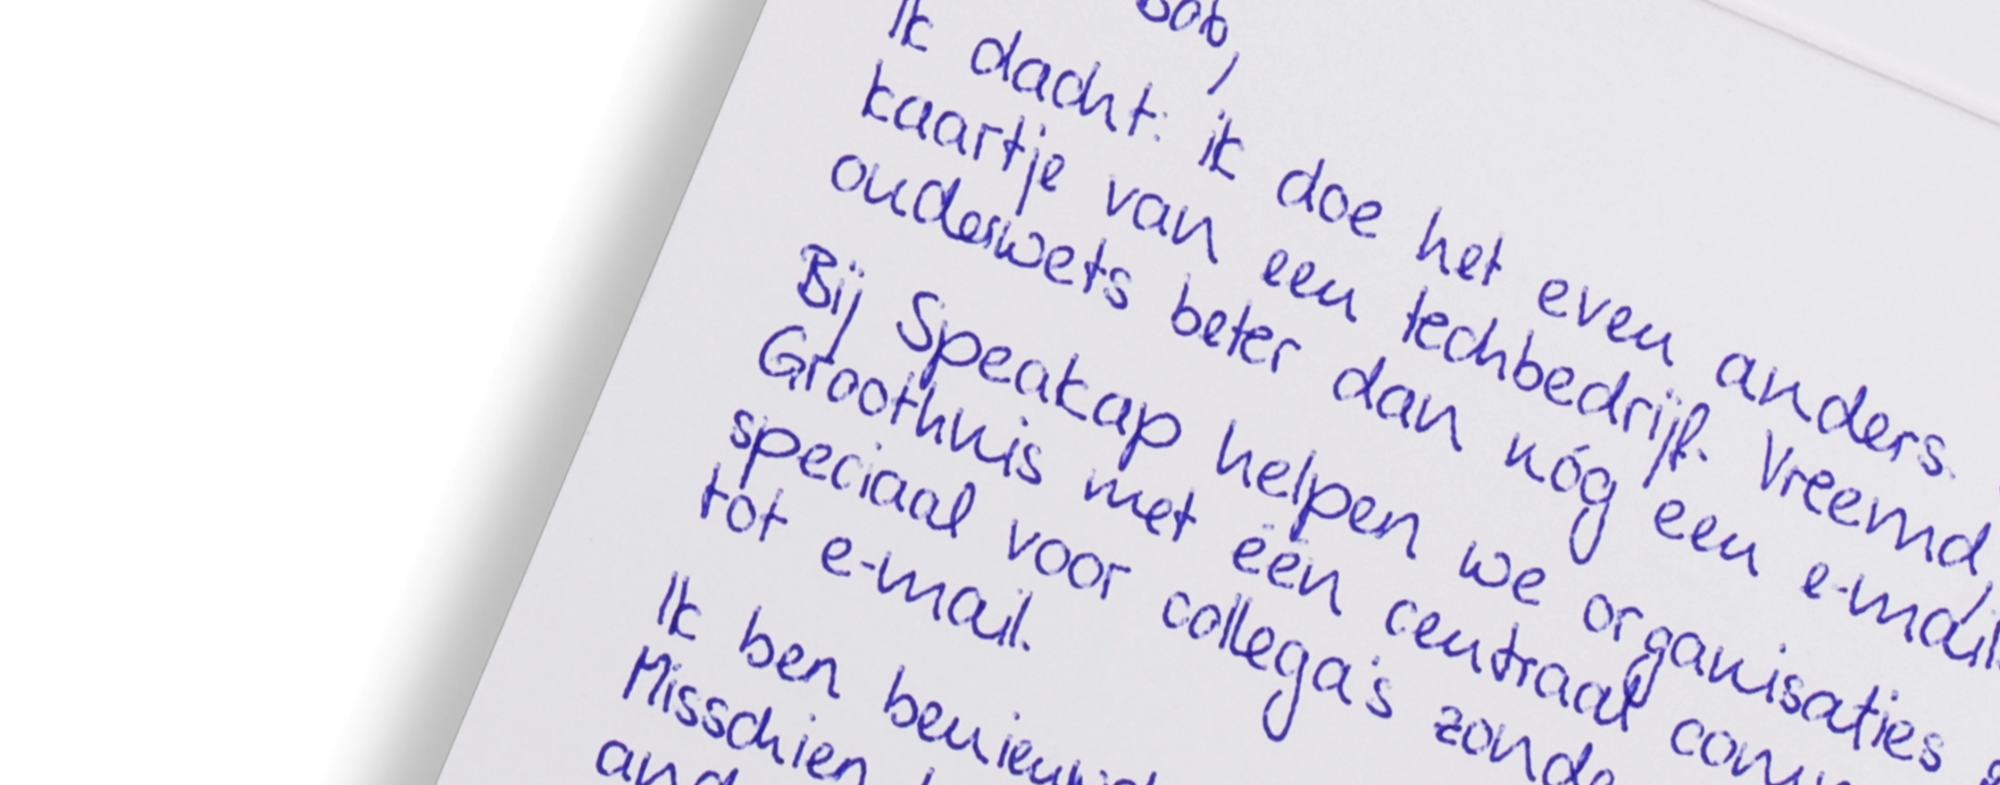 Bob,
Ik dacht: ik doe het even anders.
kaartje van een techbedrijf. Vreemd,
ouderwets beter dan nóg een e-mail
Bij Speakap helpen we organisaties
Groothuis met één centraal
speciaal voor collega's
tot e-mail.
Ik ben
Misschien